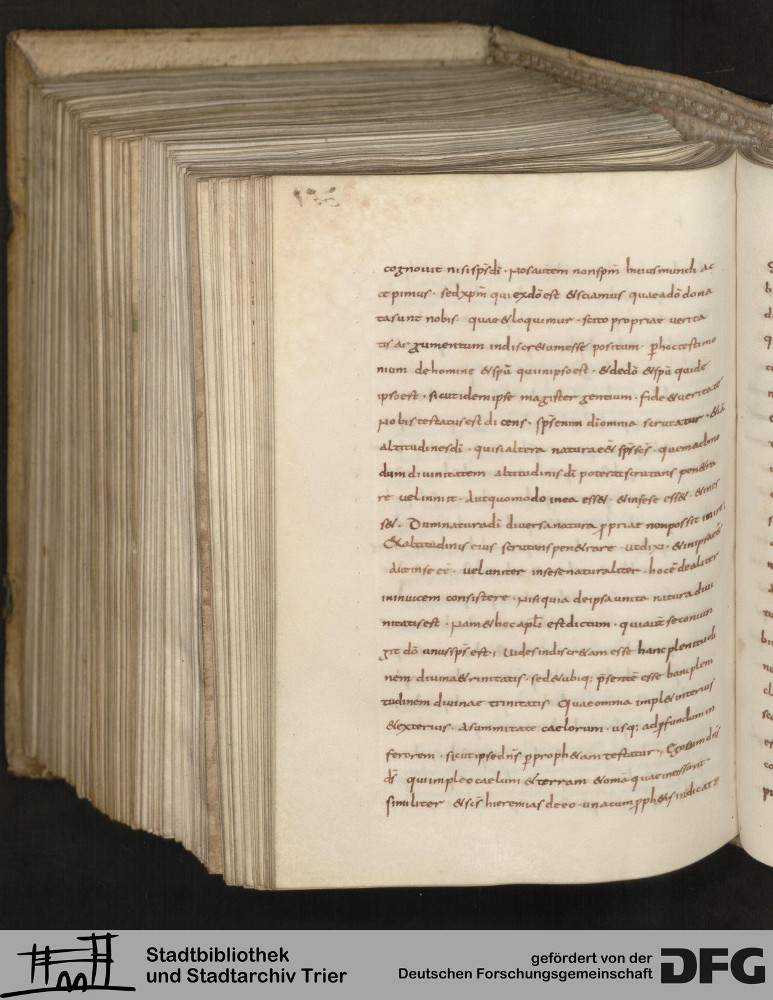 cognouit nisi sp̄s dī · Nos autem non sp̄m huius mundi ac
cepimus · sed xp̄m qui ex dō est & sciamus quae a dō dona
ta sunt nobis · quae & loquimur · scito propriae uerita
tis argumentum indiscr&um esse positum · p hoc testimo
nium de homine & spū qui in ipso est · & de dō & spū qui de
ipso est · sicut idem ipse magister gentium · fide & ueritate
Nobis testatus est dicens · sp̄s enim dī omnia scrutatur · &iā
altitudines dī · quis altera natura eēt sp̄s scs̄ · quemadmo
dum diuinitatem altitudinis dī poterit scrutans pen&ra
re uel inniti · Aut quomodo in ea ess& · & in se ess& ·
s& · Dum natura dī diuersa natura ppriae non possit
Ex altitudinis eius scrutans pen&rare · ut dixi · & in ipsa eēt
Aut in se eē · uel uniter in sese naturaliter · hoc ē dealiter
in inuicem consistere · Nisi quia de ipsa unita natura diui
nitatis est · Nam & hoc aplī est dictum · quia ut
git dō unus sp̄s est ; Uides indiscr&am esse hanc plenitudi
nem diuina & trinitatis · sed & ubiq; p̄sentē esse hanc plem
tudinem diuinae trinitatis · Quae omnia impl& interius
& exterius · A summitate caelorum · usq; ad pfundum in
feriorem · sicut ipse dn̄s p proph&am testatur ; Ego sum dn̄s
ds̄ qui impleo caelum & terram & omā quae in eis sunt
similiter & scs̄ hieremias de eo · una cum pph&is indicat
Stadtbibliothek
und Stadtarchiv Trier
gefördert von der
Deutschen Forschungsgemeinschaft
DFG